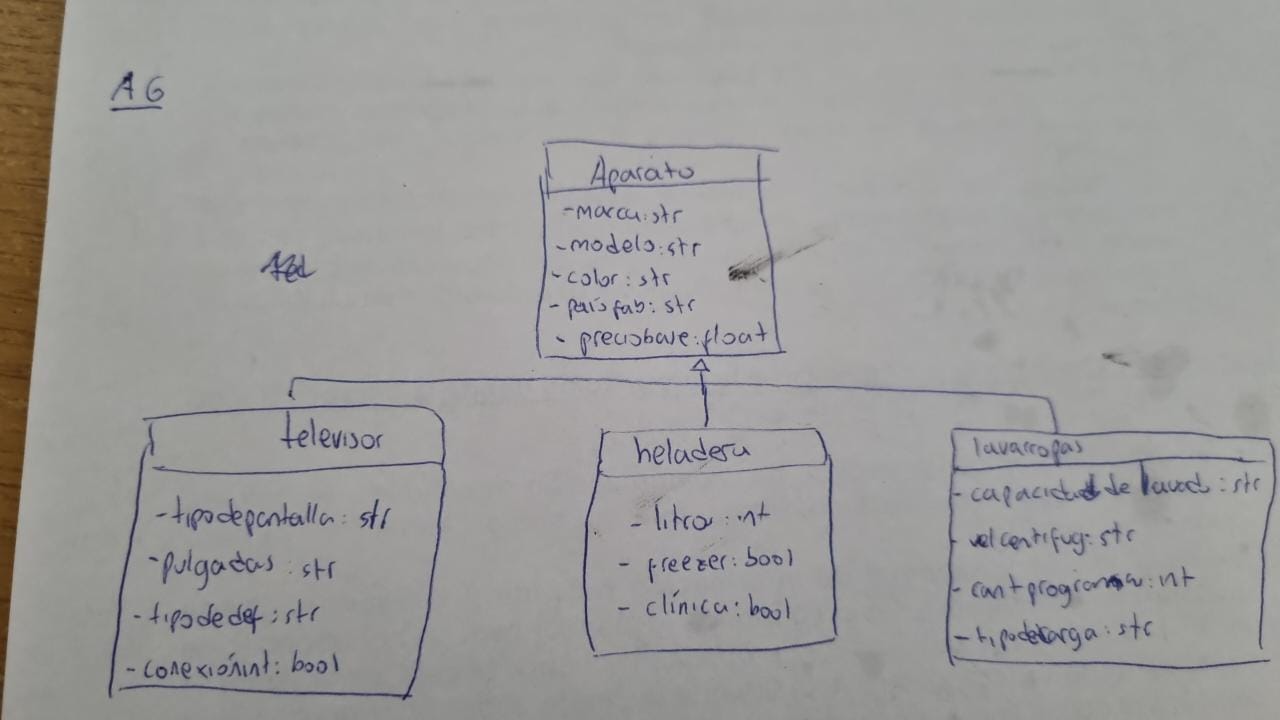 A6
Aparato
-marca:str
-modelo:str
-color:str
-paísfab:str
-preciobase:float
televisor
-tipodepantalla: str
-pulgadas :str
-tipodedef:str
-conexiónint: bool
heladera
-litros:int
-freezer:bool
-clínica:bool
lavarropas
-capacidad de lavado:str
-velcentrifug:str
-cantprograma:int
-tipodecarga:str